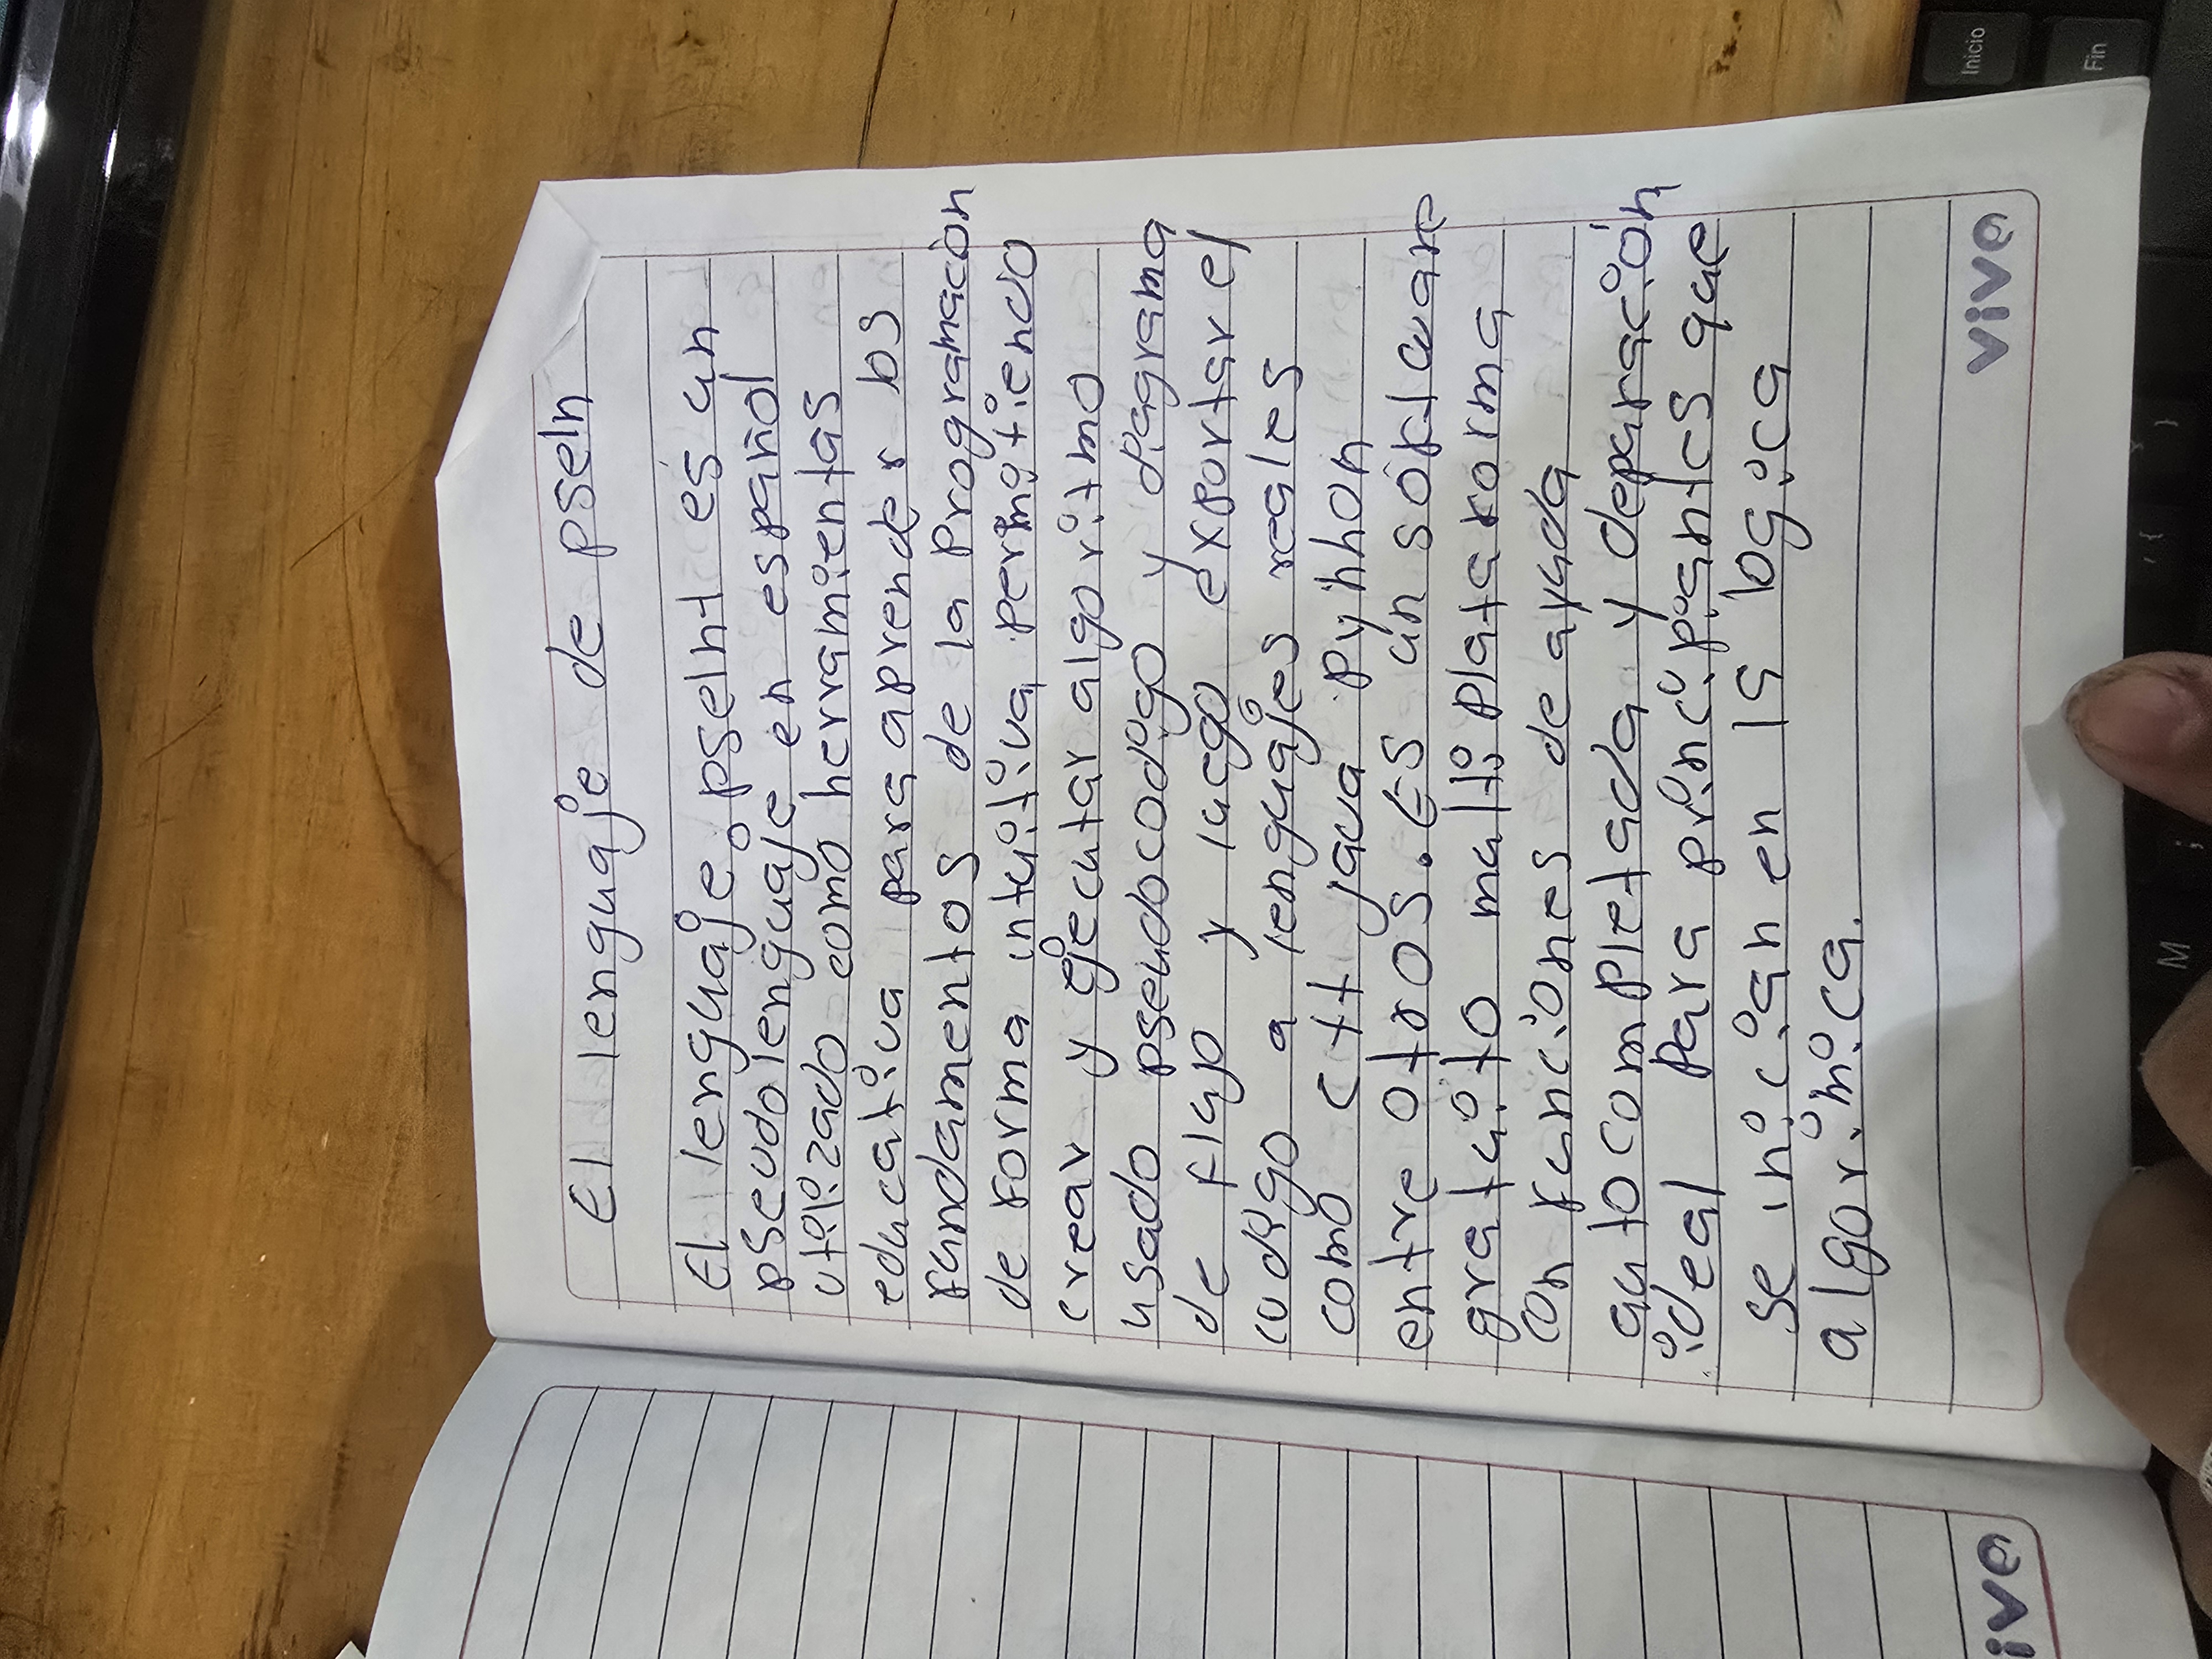 El lenguaje de pseln
El lenguaje pselnt es un
pseudolenguaje en español
utilizado como herramientas
educativa para aprender los
fundamentos de la programacón
de forma intuitiva permitiendo
crear y ejecutar algoritmo
usado pseudocodigo y diagrama
de flujo y luego exportar el
codigo a lenguajes reales
como c++ java pyhhon
entre otros. Es un software
gratuito multiplataforma
con funciones de ayuda
autocompletada y deparación
ideal para principiantes que
se inician en la logica
algorimica.
viva
iva
Inicio
Fin
M
;